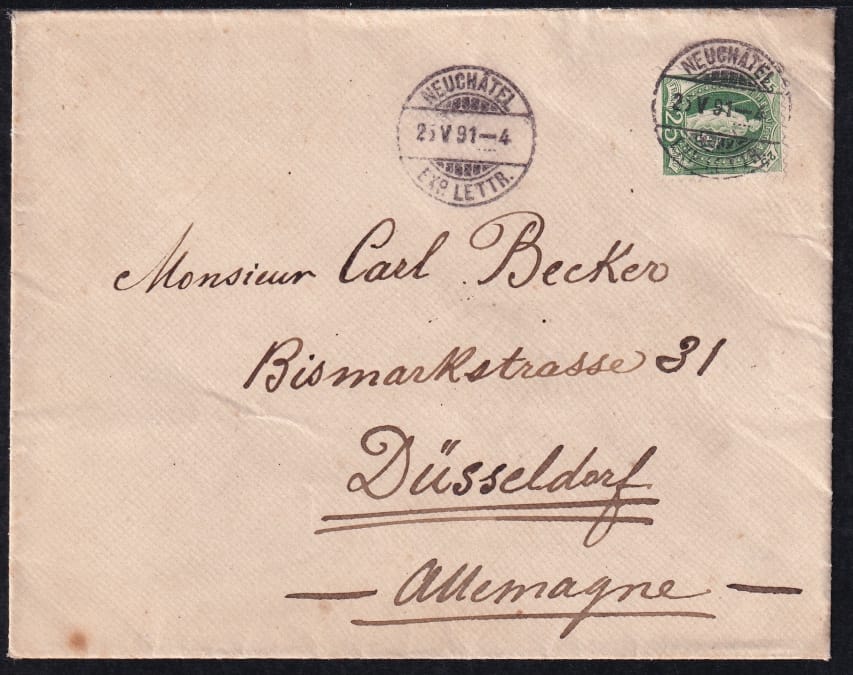 NEUCHÂTEL
V 91–4
EXP. LETTR.
NEUCHÂTEL
V 91–4
25
25
Monsieur Carl Becker
Bismarkstrasse 31
Düsseldorf
— Allemagne —